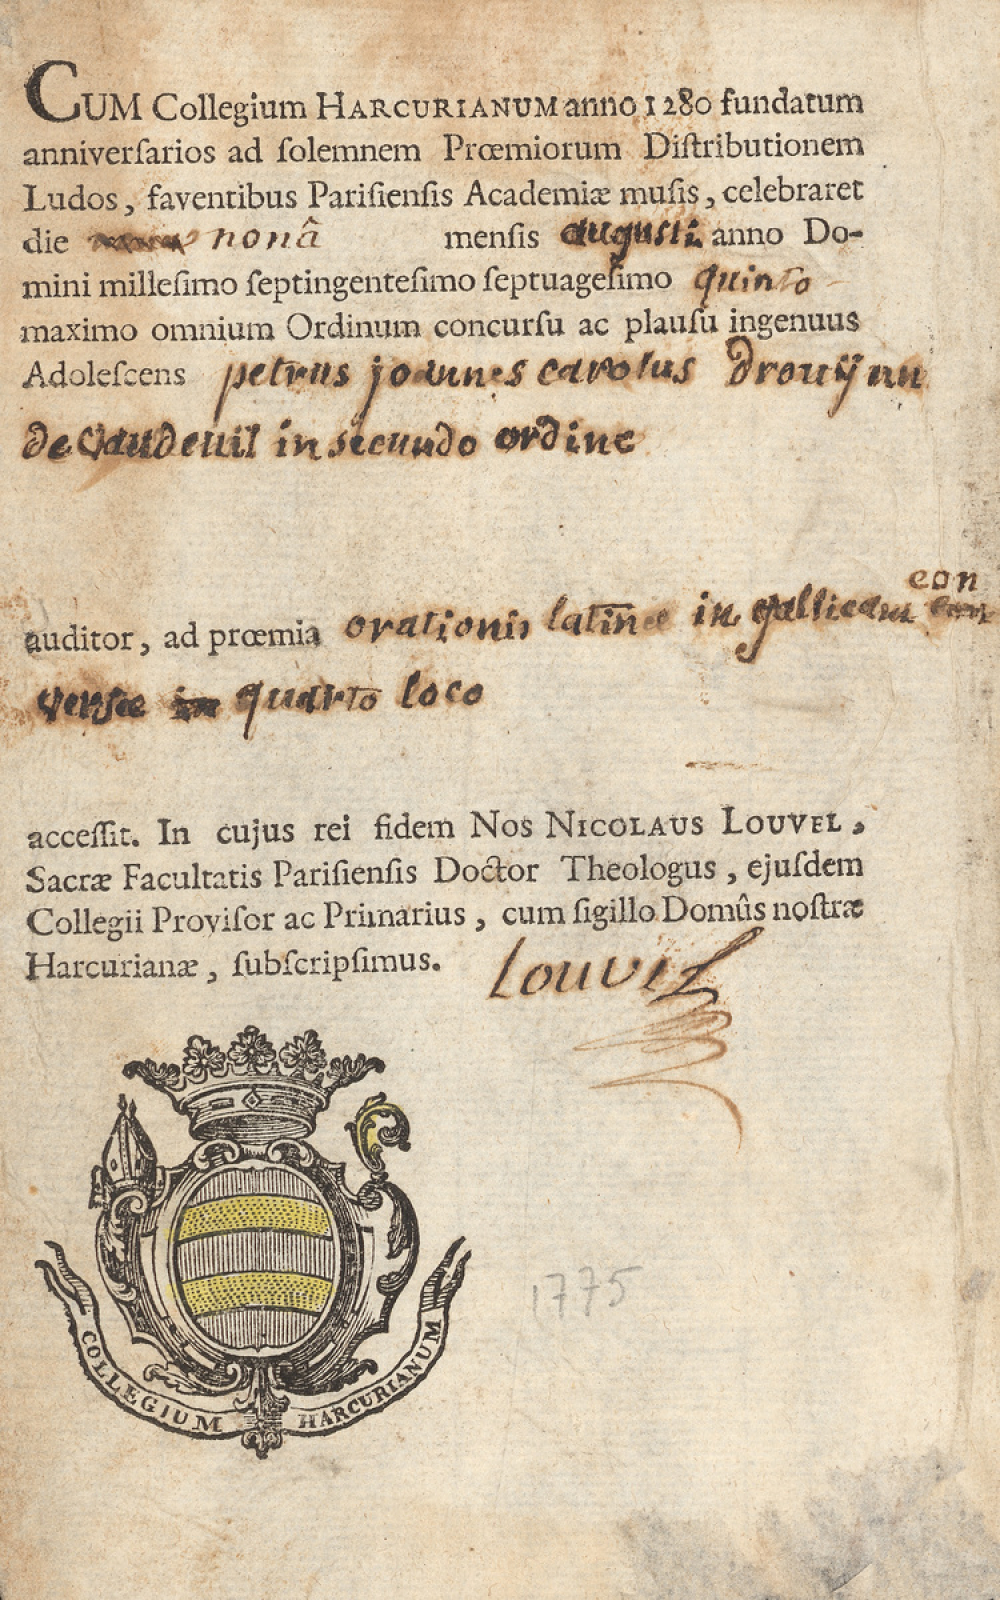 CUM Collegium HARCURIANUM anno 1280 fundatum
anniverſarios ad ſolemnem Prœmiorum Diſtributionem
Ludos, faventibus Pariſienſis Academiæ muſis, celebraret
die nonâ menſis augusti anno Do-
mini milleſimo ſeptingenteſimo ſeptuageſimo quinto
maximo omnium Ordinum concurſu ac plauſu ingenuus
Adoleſcens petrus joannes carolus drouÿnu
de Vaudeuil in secundo ordine
con
auditor, ad prœmia orationis latinæ in gallicam
versæ quarto loco
acceſſit. In cujus rei fidem Nos NICOLAUS LOUVEL,
Sacræ Facultatis Pariſienſis Doctor Theologus, ejuſdem
Collegii Proviſor ac Primarius, cum ſigillo Domûs noſtræ
Harcurianæ, ſubſcripſimus. Louvel
1775
COLLEGIUM HARCURIANUM